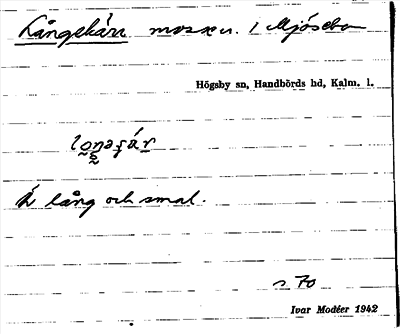 Långekärr mosse n. / Mjösebo
Högsby sn, Handbörds hd, Kalm. l.
Är lång och smal.
s 70
Ivar Modéer 1942